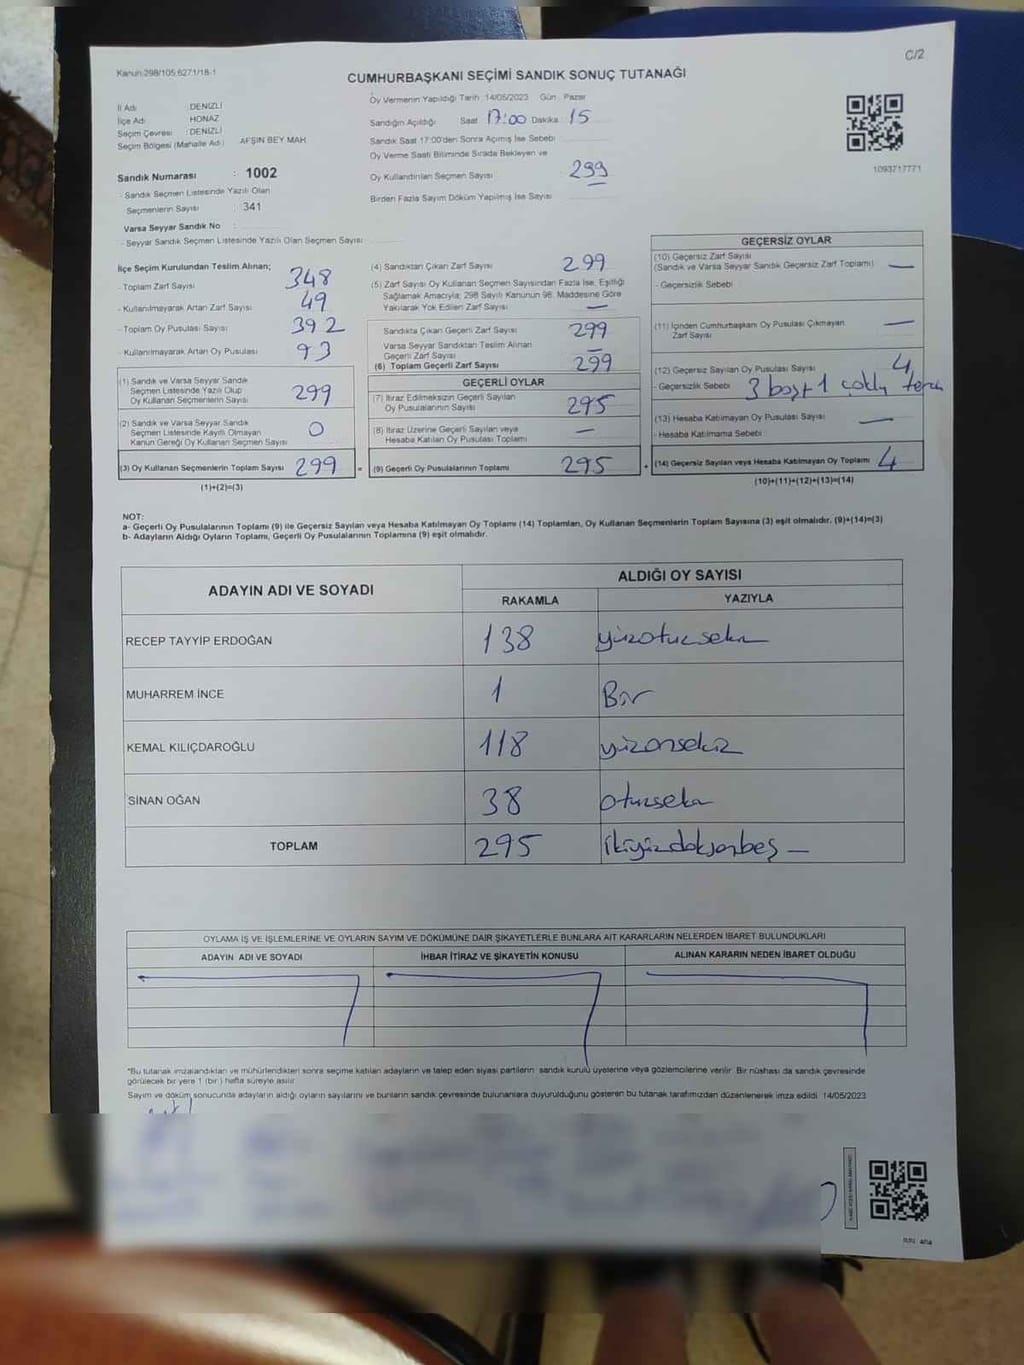 Kanun:298/105;6271/18-1
C/2
CUMHURBAŞKANI SEÇİMİ SANDIK SONUÇ TUTANAĞI
İl Adı : DENİZLİ
İlçe Adı : HONAZ
Seçim Çevresi : DENİZLİ
Seçim Bölgesi (Mahalle Adı) : AFŞIN BEY MAH
Sandık Numarası : 1002
- Sandık Seçmen Listesinde Yazılı Olan
Seçmenlerin Sayısı : 341
Varsa Seyyar Sandık No :
- Seyyar Sandık Seçmen Listesinde Yazılı Olan Seçmen Sayısı
Oy Vermenin Yapıldığı Tarih :14/05/2023 Gün : Pazar
Sandığın Açıldığı Saat 17:00 Dakika 15
Sandık Saat 17:00'den Sonra Açılmış İse Sebebi
Oy Verme Saati Bitiminde Sırada Bekleyen ve
Oy Kullandırılan Seçmen Sayısı 299
Birden Fazla Sayım Döküm Yapılmış İse Sayısı
1093717771
İlçe Seçim Kurulundan Teslim Alınan;
- Toplam Zarf Sayısı : 348
- Kullanılmayarak Artan Zarf Sayısı : 49
- Toplam Oy Pusulası Sayısı : 392
- Kullanılmayarak Artan Oy Pusulası : 93
(1) Sandık ve Varsa Seyyar Sandık
Seçmen Listesinde Yazılı Olup
Oy Kullanan Seçmenlerin Sayısı 299
(2) Sandık ve Varsa Seyyar Sandık
Seçmen Listesinde Kayıtlı Olmayan
Kanun Gereği Oy Kullanan Seçmen Sayısı 0
(3) Oy Kullanan Seçmenlerin Toplam Sayısı 299
(1)+(2)=(3)
(4) Sandıktan Çıkan Zarf Sayısı 299
(5) Zarf Sayısı Oy Kullanan Seçmen Sayısından Fazla İse, Eşitliği
Sağlamak Amacıyla; 298 Sayılı Kanunun 98. Maddesine Göre
Yakılarak Yok Edilen Zarf Sayısı —
Sandıkta Çıkan Geçerli Zarf Sayısı 299
Varsa Seyyar Sandıktan Teslim Alınan
Geçerli Zarf Sayısı —
(6) Toplam Geçerli Zarf Sayısı 299
GEÇERLİ OYLAR
(7) İtiraz Edilmeksizin Geçerli Sayılan
Oy Pusulalarının Sayısı 295
(8) İtiraz Üzerine Geçerli Sayılan veya
Hesaba Katılan Oy Pusulası Toplamı —
= (9) Geçerli Oy Pusulalarının Toplamı 295
GEÇERSİZ OYLAR
(10) Geçersiz Zarf Sayısı
(Sandık ve Varsa Seyyar Sandık Geçersiz Zarf Toplamı) —
- Geçersizlik Sebebi
(11) İçinden Cumhurbaşkanı Oy Pusulası Çıkmayan
Zarf Sayısı —
(12) Geçersiz Sayılan Oy Pusulası Sayısı 4
- Geçersizlik Sebebi 3 boş+1 çoklu
(13) Hesaba Katılmayan Oy Pusulası Sayısı —
- Hesaba Katılmama Sebebi
+ (14) Geçersiz Sayılan veya Hesaba Katılmayan Oy Toplamı 4
(10)+(11)+(12)+(13)=(14)
NOT:
a- Geçerli Oy Pusulalarının Toplamı (9) ile Geçersiz Sayılan veya Hesaba Katılmayan Oy Toplamı (14) Toplamları, Oy Kullanan Seçmenlerin Toplam Sayısına (3) eşit olmalıdır. (9)+(14)=(3)
b- Adayların Aldığı Oyların Toplamı, Geçerli Oy Pusulalarının Toplamına (9) eşit olmalıdır.
ADAYIN ADI VE SOYADI
ALDIĞI OY SAYISI
RAKAMLA YAZIYLA
RECEP TAYYIP ERDOĞAN 138 yüzotuzsekiz
MUHARREM İNCE 1 Bir
KEMAL KILIÇDAROĞLU 118 yüzonsekiz
SİNAN OĞAN 38 otuzsekiz
TOPLAM 295 ikiyüzdoksanbeş —
OYLAMA İŞ VE İŞLEMLERİNE VE OYLARIN SAYIM VE DÖKÜMÜNE DAİR ŞİKAYETLERLE BUNLARA AİT KARARLARIN NELERDEN İBARET BULUNDUKLARI
ADAYIN ADI VE SOYADI İHBAR İTİRAZ VE ŞİKAYETİN KONUSU ALINAN KARARIN NEDEN İBARET OLDUĞU
*Bu tutanak imzalandıktan ve mühürlendikten sonra seçime katılan adayların ve talep eden siyasi partilerin sandık kurulu üyelerine veya gözlemcilerine verilir. Bir nüshası da sandık çevresinde
görülecek bir yere 1 (bir) hafta süreyle asılır.
Sayım ve döküm sonucunda adayların aldığı oyların sayılarını ve bunların sandık çevresinde bulunanlara duyurulduğunu gösteren bu tutanak tarafımızdan düzenlenerek imza edildi. 14/05/2023